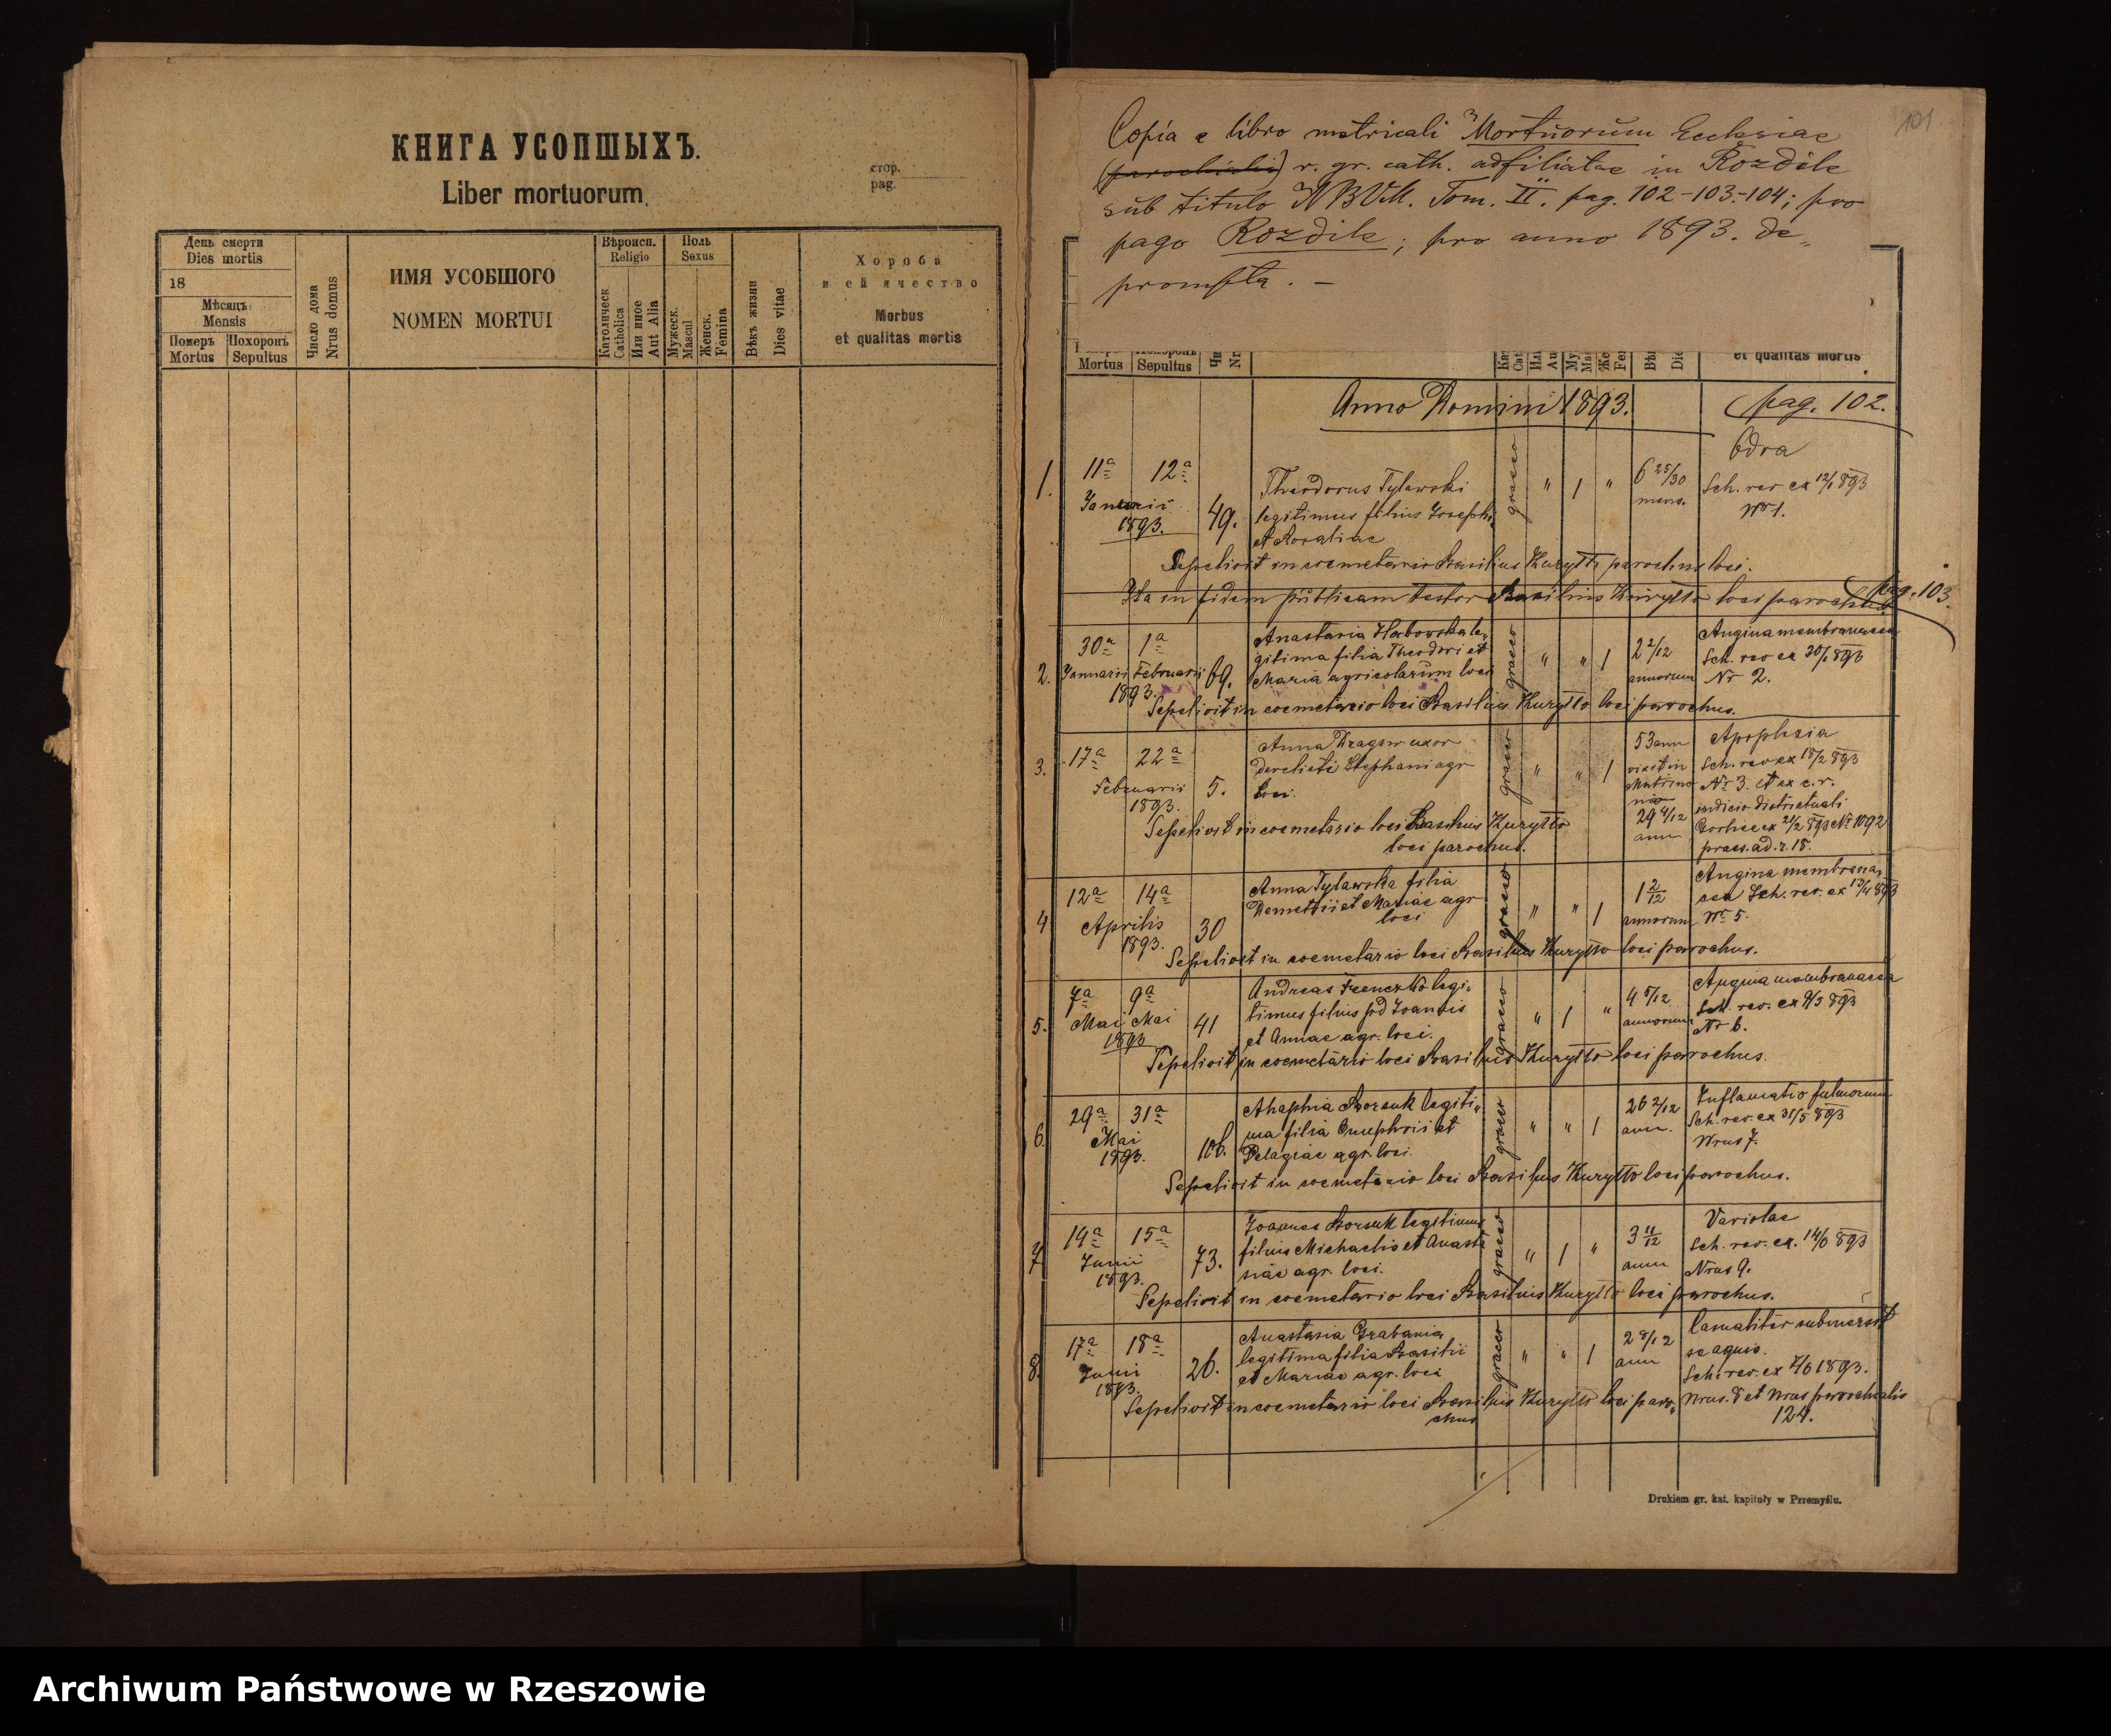 КНИГА УСОПШЫХЪ.
Liber mortuorum.
стор.
pag.
День смерти
Dies mortis
18
Мѣсяцъ
Mensis
Померъ
Mortus
Похоронъ
Sepultus
Число дома
Nrus domus
ИМЯ УСОБШОГО
NOMEN MORTUI
Вѣроисп.
Religio
Католическ
Catholica
Или иное
Aut Alia
Поль
Sexus
Мужеск.
Mascul
Женск.
Femina
Вѣкъ жизни
Dies vitae
Хороба
и ей ячество
Morbus
et qualitas mortis
101
Copia e libro metricali Mortuorum Ecclesiae
(parochialis) r. gr. cath. adfiliatae in Rozdile
sub titulo NBVM. Tom. II. pag. 102-103-104; pro
pago Rozdile; pro anno 1893. de„
prompta. –
Mortus
Sepultus
et qualitas mortis
Anno Domini 1893.
pag. 102.
1.
11ª 12ª
Januarii
1893.
49.
Theodorus Tylawski
legitimus filius Josephi
et Rosaliae
graeco
" 1 "
6 25/30
mens.
Odra
Sch. rev ex 12/1 893
Nr 1.
Sepelivit in coemetario Basilius Kuryłło parochus loci.
Ita in fidem publicam testor Basilius Kuryłło loci parochus
pag. 103.
2.
30ª 1ª
Januarii Februarii
1893.
69.
Anastasia Hbovska le„
gitima filia Theodori et
Maria agricolarum loci
graeco
" " 1
2 2/12
annorum
Angina membranacea
Sch. rev ex 30/1 893
Nr 2.
Sepelivit in coemetario loci Basilius Kuryłło loci parochus.
3.
17ª 22ª
Februarii
1893.
5.
Anna Dragan uxor
derelicti Stephani agr
loci.
graeco
" " 1
53 ann
vixit in
Matrimo
nio
29 4/12
ann
Apoplexia
Sch. rev ex 18/2 893
Nr 3. et ex c. r.
judicio districtuali
Gorlice ex 21/2 893 Nr 1092
praes. ad. r. 18.
Sepelivit in coemetario loci Basilius Kuryłło
loci parochus.
4
12ª 14ª
Aprilis
1893.
30
Anna Tylawska filia
Demetrii et Mariae agr
loci
graeco
" " 1
1 2/12
annorum
Angina membrana,
cea Sch. rev. ex 13/4 893
Nr 5.
Sepelivit in coemetario loci Basilius Kuryłło loci parochus.
5.
7ª 9ª
Mai Mai
1893
41
Andreas legi„
timus filius Joannis
et Annae agr. loci.
graeco
" 1 "
4 5/12
annorum
Angina membranacea
Sch. rev. ex 893
Nr 6.
Sepelivit in coemetario loci Basilius Kuryłło loci parochus.
6.
29ª 31ª
Mai
1893.
106.
Ahaphia Borsuk legiti„
ma filia Onuphrii et
Pelagiae agr. loci.
graeco
" " 1
26 2/12
ann.
Inflamatio pulmonum
Sch. rev. ex 31/5 893
Nrus 7.
Sepelivit in coemetario loci Basilius Kuryłło loci parochus.
7.
14ª 15ª
Junii
1893.
73.
Joannes Borsuk legitimus
filius Michaelis et Anasta
siae agr. loci.
graeco
" 1 "
3 11/12
ann
Variolae
Sch. rev. ex. 14/6 893
Nrus 9.
Sepelivit in coemetario loci Basilius Kuryłło loci parochus.
8.
17ª 18ª
Junii
1893.
26.
Anastasia Grabania
legitima filia Basilii
et Mariae agr. loci
graeco
" " 1
2 8/12
ann
Casualiter submersit
se aquis.
Sch. rev. ex 1893.
Nrus. 8 et Nrus parochialis
124.
Sepelivit in coemetario loci Basilius Kuryłło loci paro„
chus
Drukiem gr. kat. kapituły w Przemyślu.
Archiwum Państwowe w Rzeszowie